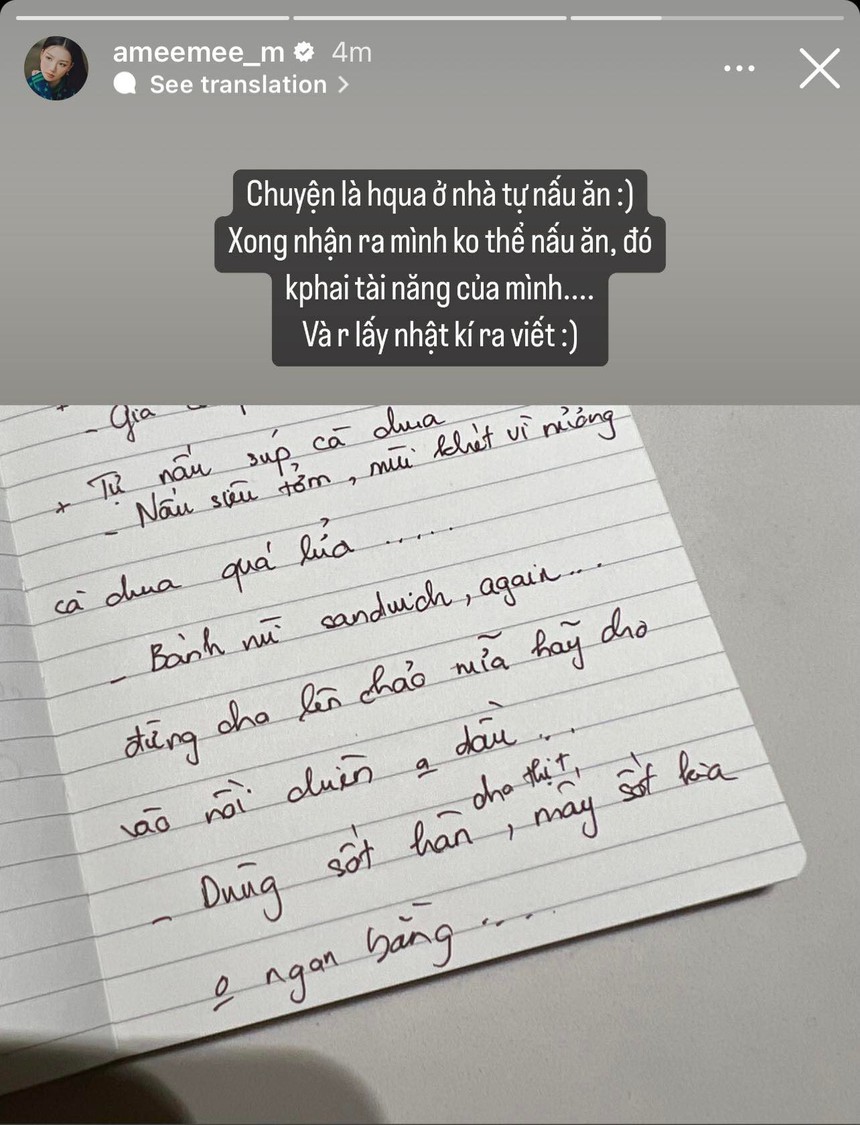 ameemee_m 4m
See translation
Chuyện là hqua ở nhà tự nấu ăn :)
Xong nhận ra mình ko thể nấu ăn, đó
kphai tài năng của mình....
Và r lấy nhật kí ra viết :)
- Gia
+ Tự nấu súp cà chua
- Nấu siêu tởm, mùi khét vì nướng
cà chua quá lửa .....
- Bánh mì sandwich, again...
đừng cho lên chảo nữa hãy cho
vào nồi chiên o dầu ...
cho thịt,
- Dùng sốt hàn, mấy sốt kia
o ngon bằng ....